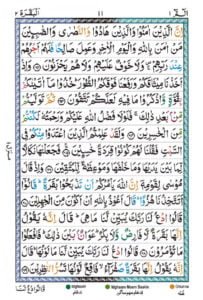 البقرة ٢
١١
الٓمّٓ ١
اِنَّ الَّذِیْنَ اٰمَنُوْا وَالَّذِیْنَ هَادُوْا وَالنَّصٰرٰى وَالصّٰبِـِٕیْنَ
مَنْ اٰمَنَ بِاللّٰهِ وَالْیَوْمِ الْاٰخِرِ وَعَمِلَ صَالِحًا فَلَهُمْ اَجْرُهُمْ
عِنْدَ رَبِّهِمْ وَلَا خَوْفٌ عَلَیْهِمْ وَلَا هُمْ یَحْزَنُوْنَ وَاِذْ اَخَذْنَا
مِیْثَاقَكُمْ وَرَفَعْنَا فَوْقَكُمُ الطُّوْرَ خُذُوْا مَاۤ اٰتَیْنٰكُمْ
بِقُوَّةٍ وَّاذْكُرُوْا مَا فِیْهِ لَعَلَّكُمْ تَتَّقُوْنَ ثُمَّ تَوَلَّیْتُمْ
مِّنْ بَعْدِ ذٰلِكَ فَلَوْلَا فَضْلُ اللّٰهِ عَلَیْكُمْ وَرَحْمَتُهٗ لَكُنْتُمْ
مِّنَ الْخٰسِرِیْنَ وَلَقَدْ عَلِمْتُمُ الَّذِیْنَ اعْتَدَوْا مِنْكُمْ فِی
السَّبْتِ فَقُلْنَا لَهُمْ كُوْنُوْا قِرَدَةً خٰسِـِٕیْنَ فَجَعَلْنٰهَا
نَكَالًا لِّمَا بَیْنَ یَدَیْهَا وَمَا خَلْفَهَا وَمَوْعِظَةً لِّلْمُتَّقِیْنَ وَاِذْ قَالَ
مُوْسٰى لِقَوْمِهٖۤ اِنَّ اللّٰهَ یَاْمُرُكُمْ اَنْ تَذْبَحُوْا بَقَرَةً قَالُوْۤا
اَتَتَّخِذُنَا هُزُوًا قَالَ اَعُوْذُ بِاللّٰهِ اَنْ اَكُوْنَ مِنَ الْجٰهِلِیْنَ
قَالُوا ادْعُ لَنَا رَبَّكَ یُبَیِّنْ لَّنَا مَا هِیَ قَالَ اِنَّهٗ یَقُوْلُ
اِنَّهَا بَقَرَةٌ لَّا فَارِضٌ وَّلَا بِكْرٌ عَوَانٌ بَیْنَ ذٰلِكَ فَافْعَلُوْا
مَا تُؤْمَرُوْنَ قَالُوا ادْعُ لَنَا رَبَّكَ یُبَیِّنْ لَّنَا مَا لَوْنُهَا قَالَ
اِنَّهٗ یَقُوْلُ اِنَّهَا بَقَرَةٌ صَفْرَآءُ فَاقِعٌ لَّوْنُهَا تَسُرُّ النّٰظِرِیْنَ